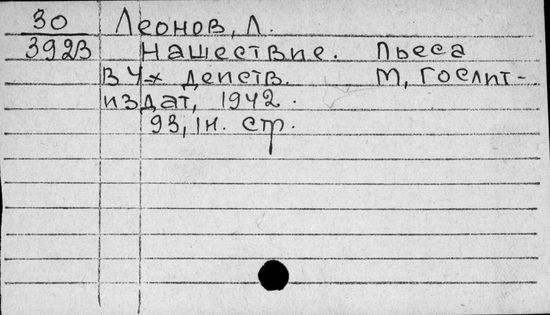 30 Леонов, Л.
3923 Нашествие. Пьеса
в 4-х действ. М, Гослит-
издат, 1942.
93, 1н. стр.